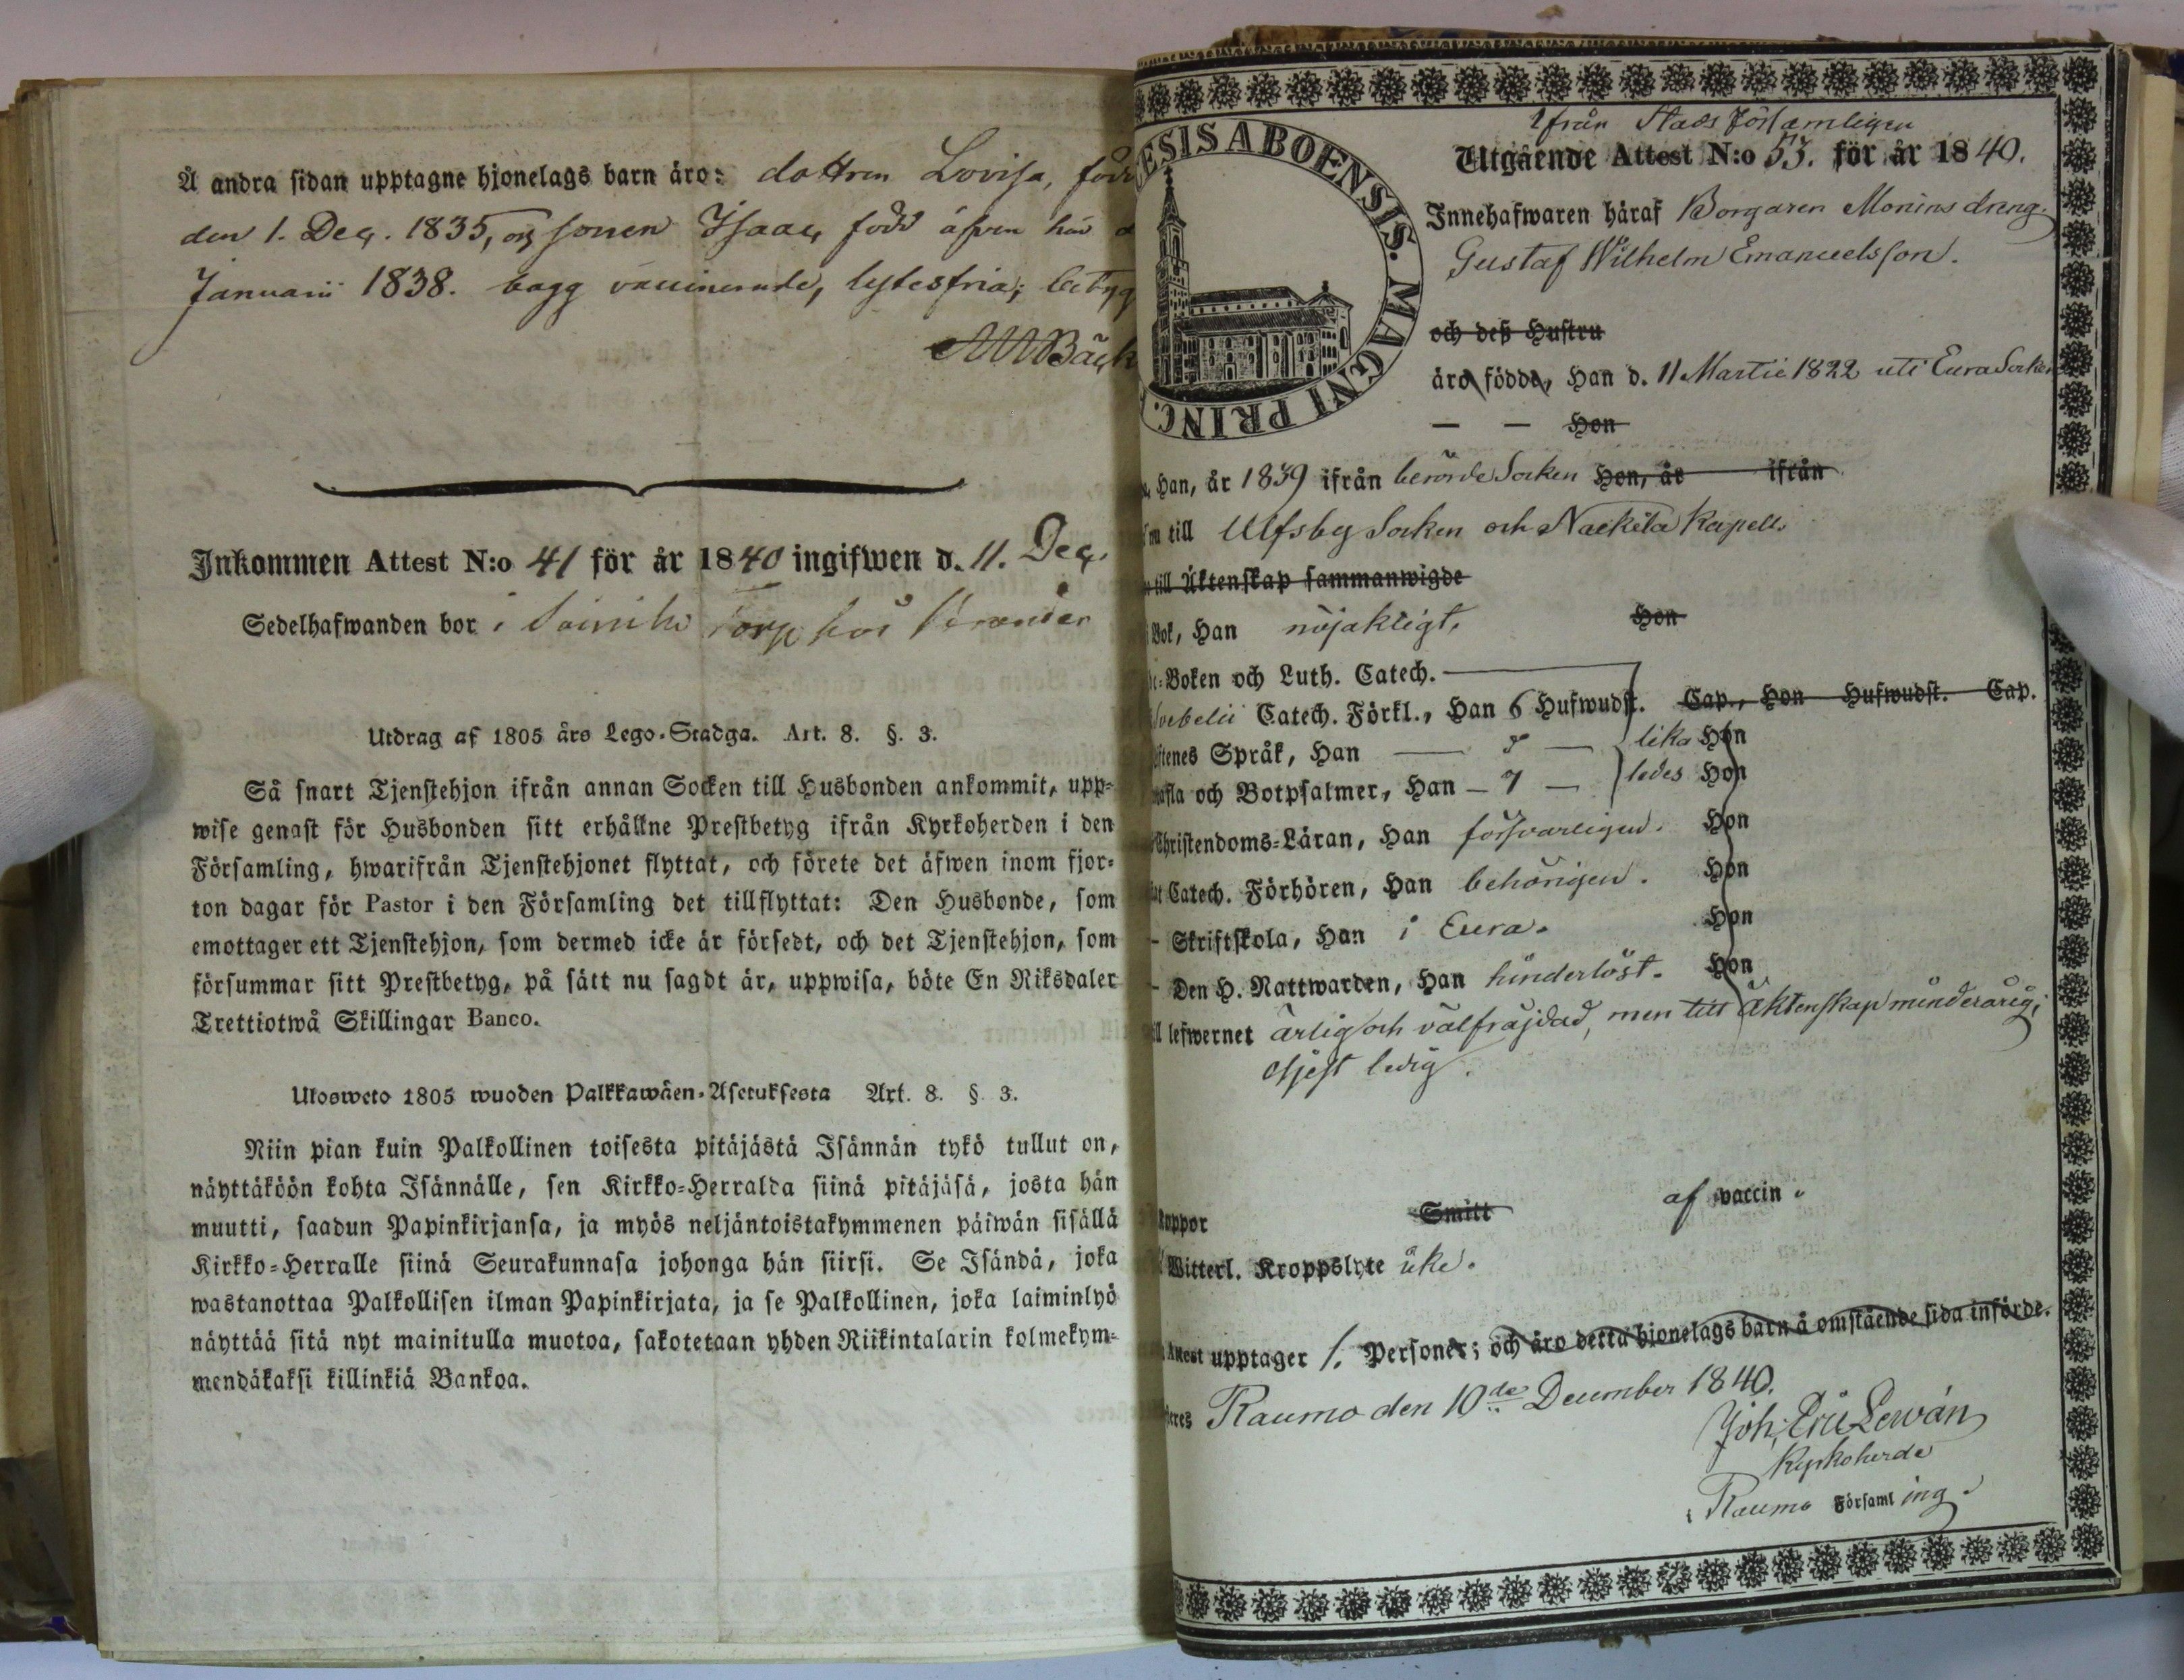 Å andra sidan upptagne hjonelags barn äro: dottren Lovisa, född
den 1. Dec. 1835, och sonen Isaac född äfven här d
Januarii 1838. bägg vaccinerade, lytesfria; betyg
Bäck
Inkommen Attest N:o 41 för år 1840 ingifwen d. 11. Dec.
Sedelhafwanden bor i Torp hos
Utdrag af 1805 års Lego-Stadga. Art. 8. §. 3.
Så snart Tjenstehjon ifrån annan Socken till Husbonden ankommit, upp-
wise genast för Husbonden sitt erhållne Prestbetyg ifrån Kyrkoherden i den
Församling, hwarifrån Tjenstehjonet flyttat, och förete det äfwen inom fjor-
ton dagar för Pastor i den Församling det tillflyttat: Den Husbonde, som
emottager ett Tjenstehjon, som dermed icke är försedt, och det Tjenstehjon, som
försummar sitt Prestbetyg, på sätt nu sagdt är, uppwisa, böte En Riksdaler
Trettiotwå Skillingar Banco.
Ulosweto 1805 wuoden Palkkawäen-Asetuksesta Art. 8. § 3.
Niin pian kuin Palkollinen toisesta pitäjästä Isännän tykö tullut on,
näyttäköön kohta Isännälle, sen Kirkko-Herralda siinä pitäjäsä, josta hän
muutti, saadun Papinkirjansa, ja myös neljäntoistakymmenen päiwän sisällä
Kirkko-Herralle siinä Seurakunnasa johonga hän siirsi. Se Isändä, joka
wastanottaa Palkollisen ilman Papinkirjata, ja se Palkollinen, joka laiminlyö
näyttää sitä nyt mainitulla muotoa, sakotetaan yhden Riikintalarin kolmekym-
mendäkaksi killinkiä Bankoa.
ESIS ABOENSIS. MAGNI PRINC.
Ifrån Stads Församlingen
Utgående Attest N:o 53. för år 1840.
Innehafwaren häraf Borgaren Monins dreng
Gustaf Wilhelm Emanuelsson.
och deß Hustru
äro födde, Han d. 11 Martii 1822 uti Eura Socken
— — Hon
Han, år 1839 ifrån berörde Socken Hon, år ifrån
till Ulfsby Socken och Nackila Kapell.
till Äktenskap sammanwigde
Bok, Han nöjaktigt. Hon
Boken och Luth. Catech.
Svebelii Catech. Förkl., Han 6 Hufwudst. Cap., Hon Hufwudst. Cap.
Språk, Han — — lika Hon
och Botpsalmer, Han — 7 — ledes Hon
Christendoms-Läran, Han försvarligen. Hon
Catech. Förhören, Han behörigen. Hon
Skriftskola, Han i Eura. Hon
Den H. Nattwarden, Han hinderlöst. Hon
lefwernet ärlig och välfräjdad, men till äktenskap minderårig;
ledig.
Koppor Smitt af vaccin.
Witterl. Kroppslyte icke.
Attest upptager 1. Personer; och äro detta hjonelags barn å omstående sida införde.
Raumo den 10de December 1840.
Joh. Eric Lewán
Kyrkoherde
i Raumo Församling.